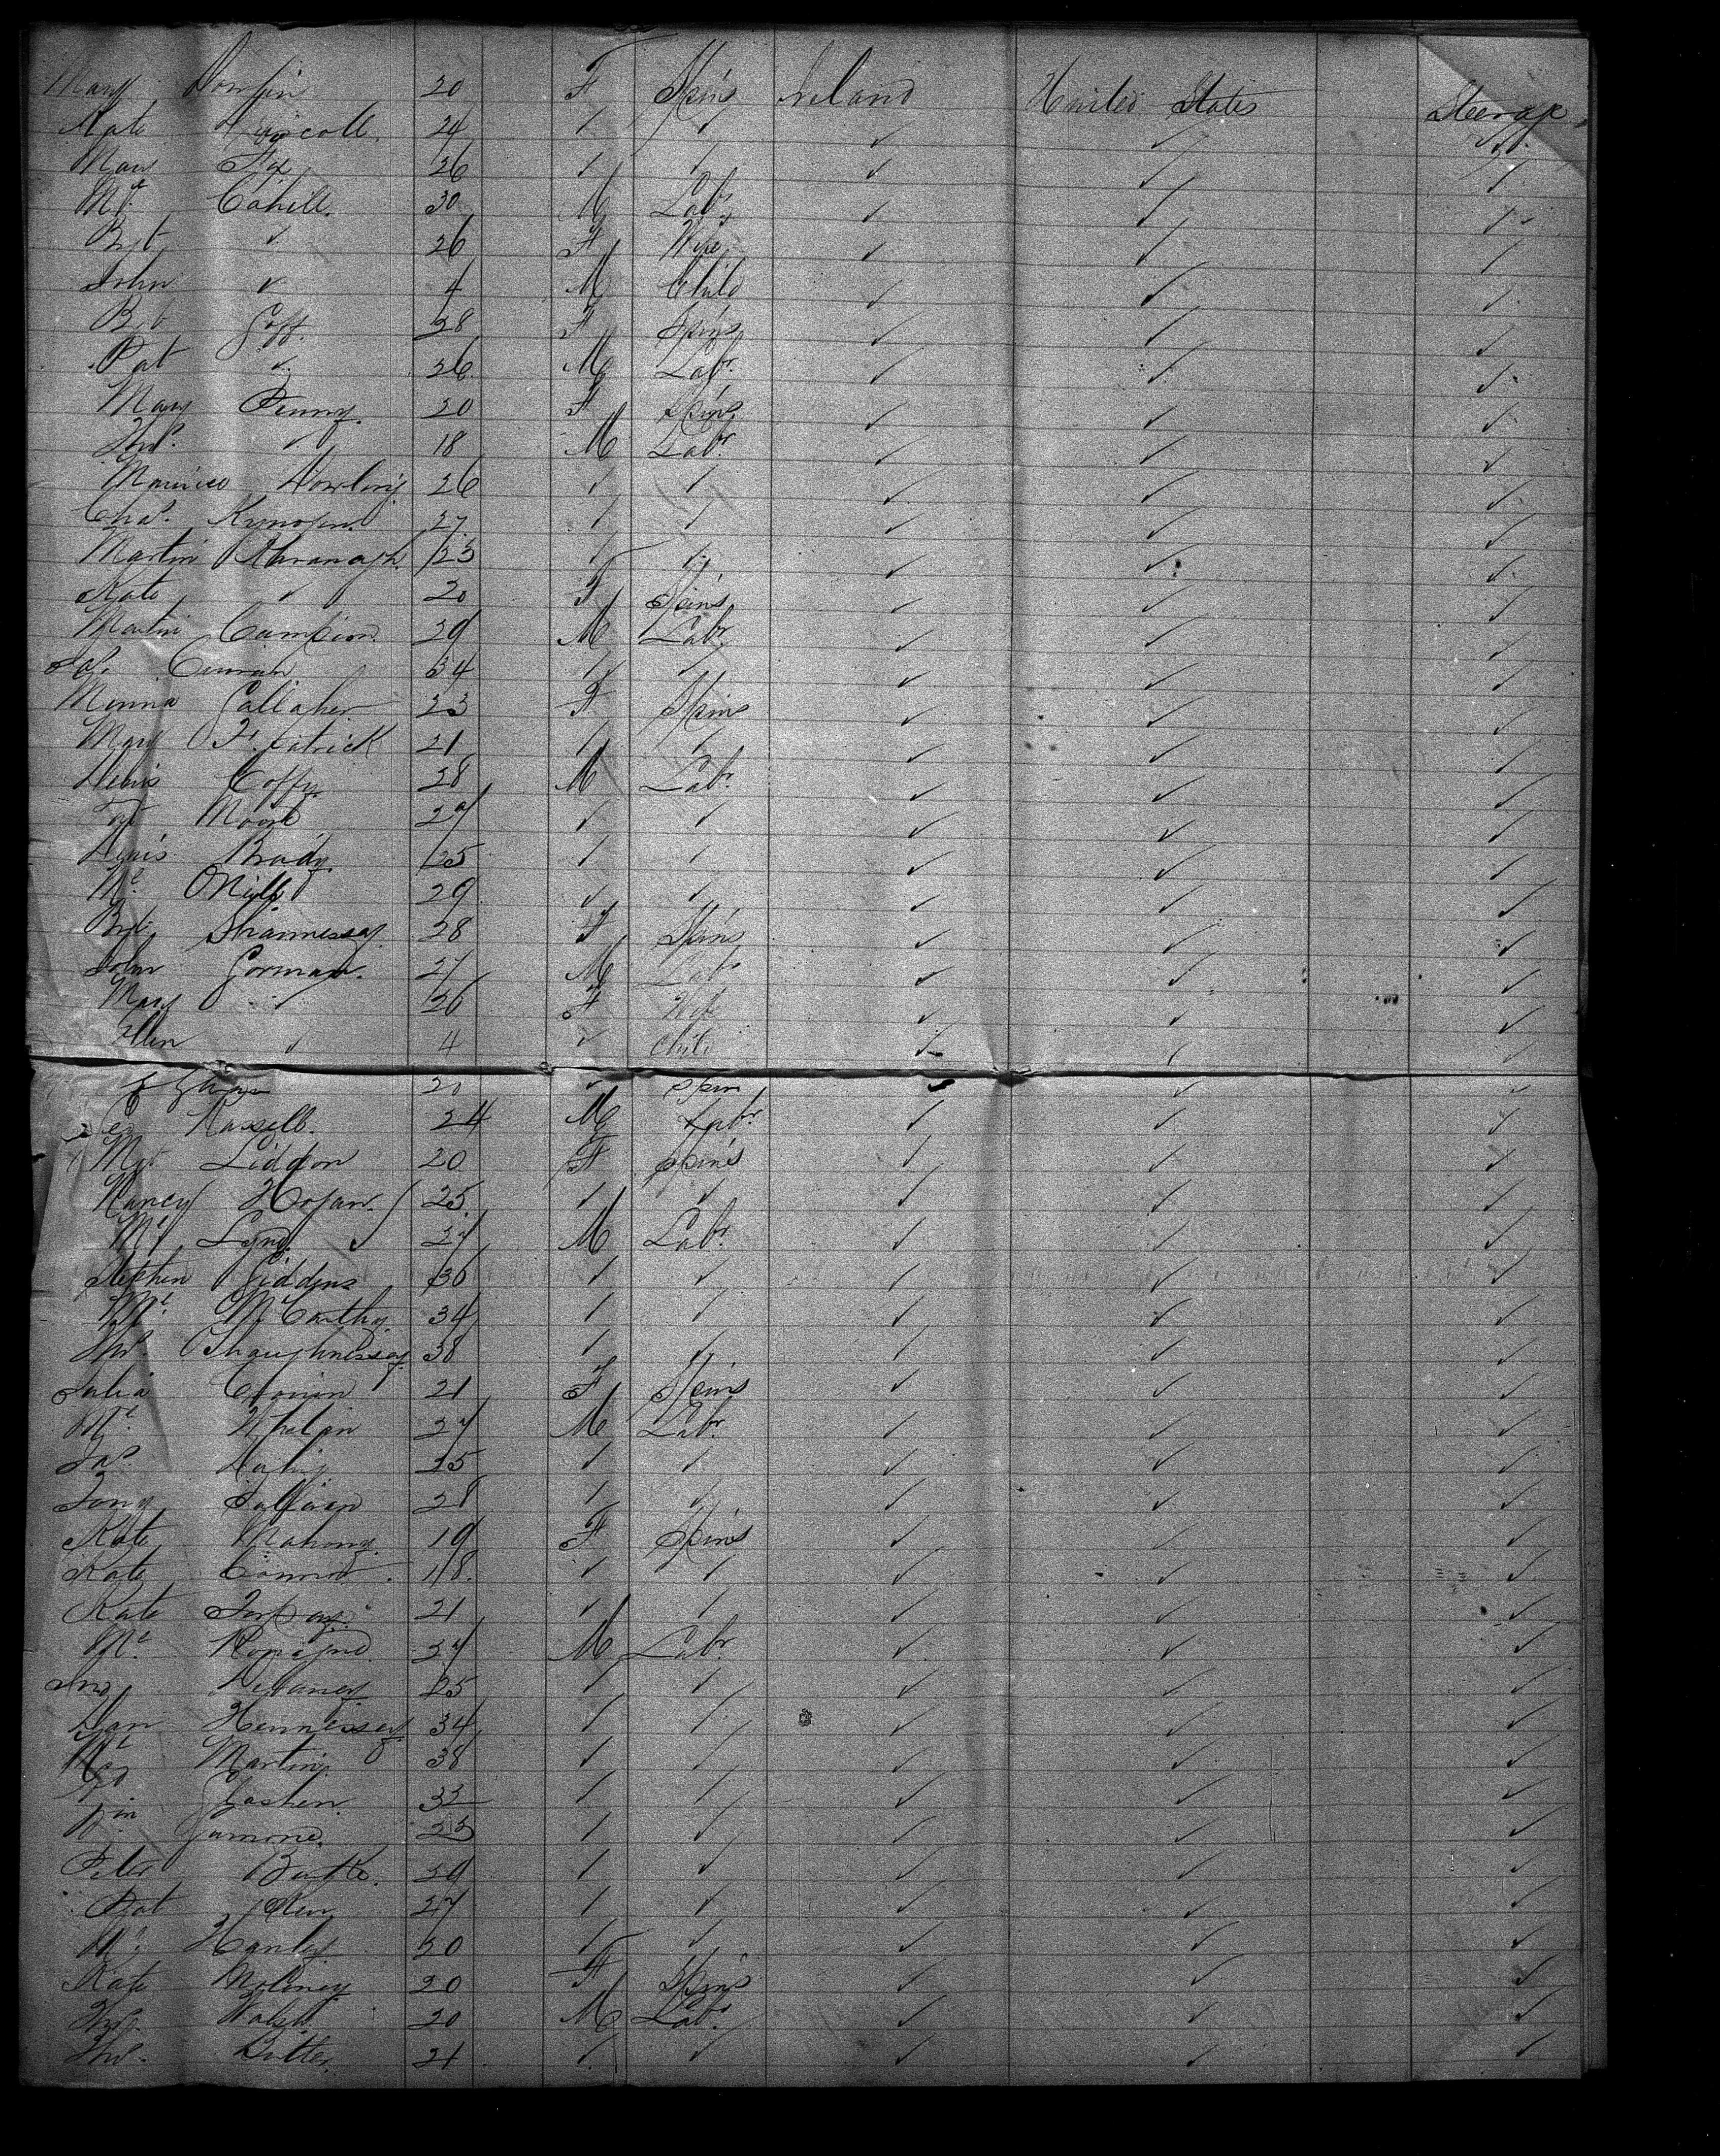 Mary 20 F Spins Ireland United States Steerage
Kate Driscoll. 24 ✓ ✓ ✓ ✓ ✓
Mary Fox 26 ✓ ✓ ✓ ✓ ✓
Ml. Cahill. 30 M Labr. ✓ ✓ ✓
Bgt ✓ 26 F Wife ✓ ✓ ✓
John ✓ 4 M Child ✓ ✓ ✓
Bgt Goff. 28 F Spins ✓ ✓ ✓
Pat ✓ 26 M Labr. ✓ ✓ ✓
Mary Penny. 20 F Spins ✓ ✓ ✓
Thos. ✓ 18 M Labr. ✓ ✓ ✓
Maurice Dowling 26 ✓ ✓ ✓ ✓ ✓
Chas. 27 ✓ ✓ ✓ ✓ ✓
Martin Kavanagh. 23 ✓ ✓ ✓ ✓ ✓
Kate ✓ 20 F Spins ✓ ✓ ✓
Martin Campion. 29 M Labr. ✓ ✓ ✓
Jas. Curran 34 ✓ ✓ ✓ ✓ ✓
Minna Gallaher 23 F Spins ✓ ✓ ✓
Mary Fitzpatrick 21 ✓ ✓ ✓ ✓ ✓
Denis Coffy 28 M Labr. ✓ ✓ ✓
Pat Moore 29 ✓ ✓ ✓ ✓ ✓
Denis Brady 25 ✓ ✓ ✓ ✓ ✓
Ml. ONeill 29 ✓ ✓ ✓ ✓ ✓
Bgt. Shannessy 28 F Spins ✓ ✓ ✓
John Gorman. 27 M Labr ✓ ✓ ✓
Mary ✓ 26 F Wife ✓ ✓ ✓
Ellen ✓ 4 ✓ Child ✓ ✓ ✓
20 ✓ Spin ✓ ✓ ✓
Russell. 24 M Labr. ✓ ✓ ✓
Mgt Liddon 20 F Spins ✓ ✓ ✓
Nancy Hogan. 25. ✓ ✓ ✓ ✓ ✓
Ml 27 M Labr. ✓ ✓ ✓
Stephen Giddens 36 ✓ ✓ ✓ ✓ ✓
Ml. McCarthy. 34 ✓ ✓ ✓ ✓ ✓
Thos. OShaughnessy 38 ✓ ✓ ✓ ✓ ✓
Julia Cronin 21 F Spins ✓ ✓ ✓
Ml. Whelan 27 M Labr. ✓ ✓ ✓
Jas. 25 ✓ ✓ ✓ ✓ ✓
Tony Sullivan 28 ✓ ✓ ✓ ✓ ✓
Kate Mahony. 19 F Spins ✓ ✓ ✓
Kate Connor. 18. ✓ ✓ ✓ ✓ ✓
Kate Torpay. 21 ✓ ✓ ✓ ✓ ✓
Ml. 27 M Labr. ✓ ✓ ✓
Jno Delaney 25 ✓ ✓ ✓ ✓ ✓
Dan Hennessey 34 ✓ ✓ ✓ ✓ ✓
Ml Martin. 38 ✓ ✓ ✓ ✓ ✓
33 ✓ ✓ ✓ ✓ ✓
Wm 23 ✓ ✓ ✓ ✓ ✓
Peter Burke. 29 ✓ ✓ ✓ ✓ ✓
Pat 27 ✓ ✓ ✓ ✓ ✓
Ml. Hanley 20 ✓ ✓ ✓ ✓ ✓
Kate Moloney 20 F Spins ✓ ✓ ✓
Thos. Walsh. 20 M Labr. ✓ ✓ ✓
Thos. Butler. 21 ✓ ✓ ✓ ✓ ✓